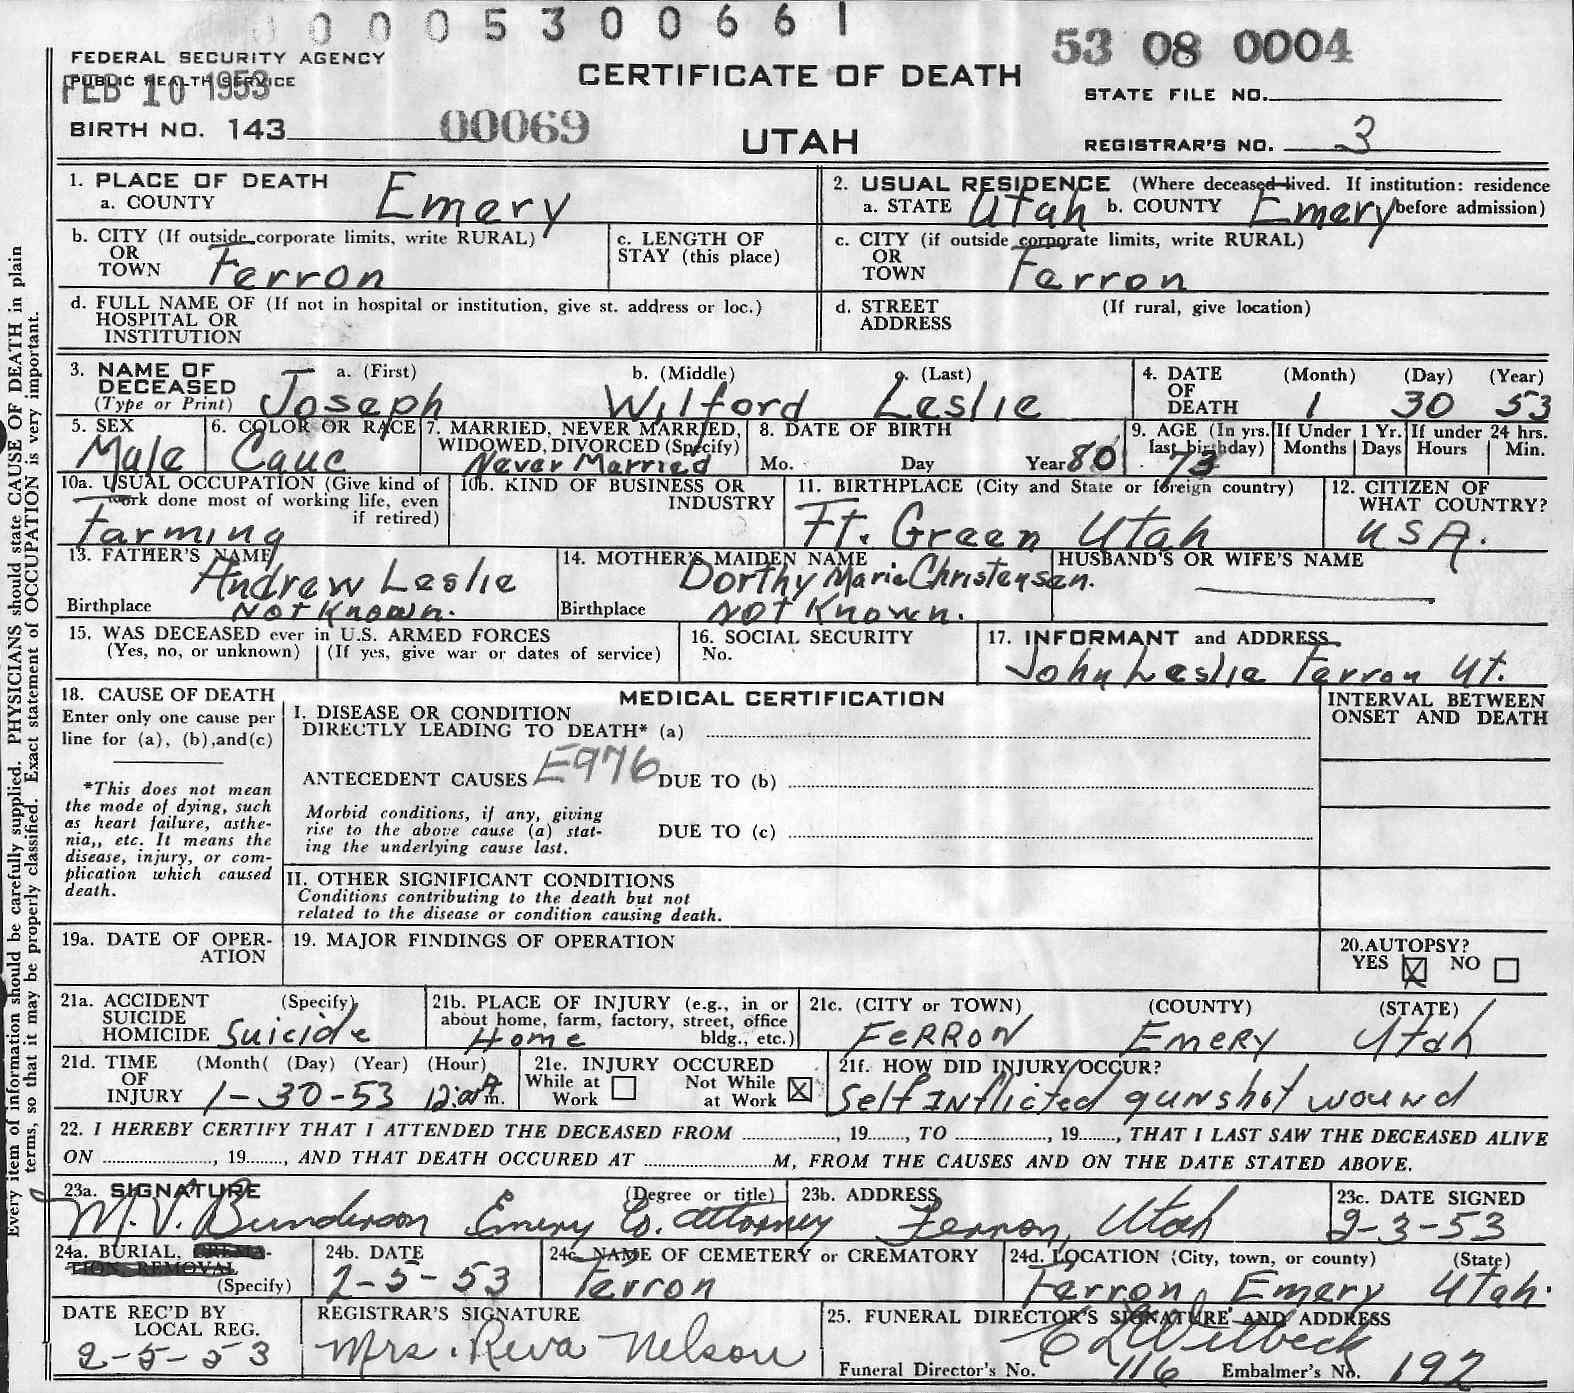 0 0 0 0 5 3 0 0 6 6 1
53 08 0004
FEDERAL SECURITY AGENCY
PUBLIC HEALTH SERVICE
FEB 10 1953
CERTIFICATE OF DEATH
STATE FILE NO.
BIRTH NO. 143 00069
UTAH
REGISTRAR'S NO. 3
Every item of information should be carefully supplied. PHYSICIANS should state CAUSE OF DEATH in plain
terms, so that it may be properly classified. Exact statement of OCCUPATION is very important.
1. PLACE OF DEATH
a. COUNTY Emery
2. USUAL RESIDENCE (Where deceased lived. If institution: residence
a. STATE Utah b. COUNTY Emery before admission)
b. CITY (If outside corporate limits, write RURAL)
OR
TOWN Ferron
c. LENGTH OF
STAY (this place)
c. CITY (if outside corporate limits, write RURAL)
OR
TOWN Ferron
d. FULL NAME OF (If not in hospital or institution, give st. address or loc.)
HOSPITAL OR
INSTITUTION
d. STREET (If rural, give location)
ADDRESS
3. NAME OF DECEASED (Type or Print)
a. (First) b. (Middle) c. (Last)
Joseph Wilford Leslie
4. DATE OF DEATH (Month) (Day) (Year)
1 30 53
5. SEX
Male
6. COLOR OR RACE
Cauc
7. MARRIED, NEVER MARRIED,
WIDOWED, DIVORCED (Specify)
Never Married
8. DATE OF BIRTH
Mo. Day Year 80
9. AGE (In yrs. last birthday)
73
If Under 1 Yr.
Months Days
If under 24 hrs.
Hours Min.
10a. USUAL OCCUPATION (Give kind of
work done most of working life, even
if retired)
Farming
10b. KIND OF BUSINESS OR
INDUSTRY
11. BIRTHPLACE (City and State or foreign country)
Ft. Green Utah
12. CITIZEN OF
WHAT COUNTRY?
USA.
13. FATHER'S NAME
Andrew Leslie
Birthplace Not Known.
14. MOTHER'S MAIDEN NAME
Dorthy Marie Christensen.
Birthplace Not Known.
HUSBAND'S OR WIFE'S NAME
15. WAS DECEASED ever in U.S. ARMED FORCES
(Yes, no, or unknown) (If yes, give war or dates of service)
16. SOCIAL SECURITY
No.
17. INFORMANT and ADDRESS
John Leslie Ferron Ut.
18. CAUSE OF DEATH
Enter only one cause per
line for (a), (b),and(c)
*This does not mean
the mode of dying, such
as heart failure, asthe-
nia,, etc. It means the
disease, injury, or com-
plication which caused
death.
MEDICAL CERTIFICATION
I. DISEASE OR CONDITION
DIRECTLY LEADING TO DEATH* (a)
ANTECEDENT CAUSES E976 DUE TO (b)
Morbid conditions, if any, giving
rise to the above cause (a) stat-
ing the underlying cause last.
DUE TO (c)
INTERVAL BETWEEN
ONSET AND DEATH
II. OTHER SIGNIFICANT CONDITIONS
Conditions contributing to the death but not
related to the disease or condition causing death.
19a. DATE OF OPER-
ATION
19. MAJOR FINDINGS OF OPERATION
20.AUTOPSY?
YES X NO
21a. ACCIDENT (Specify)
SUICIDE
HOMICIDE Suicide
21b. PLACE OF INJURY (e.g., in or
about home, farm, factory, street, office
bldg., etc.)
Home
21c. (CITY or TOWN) (COUNTY) (STATE)
FERRON Emery Utah
21d. TIME (Month( (Day) (Year) (Hour)
OF
INJURY 1-30-53 m.
21e. INJURY OCCURED
While at Work Not While at Work X
21f. HOW DID INJURY OCCUR?
Self Inflicted gunshot wound
22. I HEREBY CERTIFY THAT I ATTENDED THE DECEASED FROM ............, 19......, TO ............, 19......, THAT I LAST SAW THE DECEASED ALIVE
ON ............, 19......, AND THAT DEATH OCCURED AT ............M, FROM THE CAUSES AND ON THE DATE STATED ABOVE.
23a. SIGNATURE (Degree or title)
M.V. Bunderson Emery Co. Attorney
23b. ADDRESS
Ferron, Utah
23c. DATE SIGNED
2-3-53
24a. BURIAL, CREMA-
TION, REMOVAL
(Specify)
24b. DATE
2-5-53
24c. NAME OF CEMETERY or CREMATORY
Ferron
24d. LOCATION (City, town, or county) (State)
Ferron Emery Utah.
DATE REC'D BY
LOCAL REG.
2-5-53
REGISTRAR'S SIGNATURE
Mrs. Reva Nelson
25. FUNERAL DIRECTOR'S SIGNATURE AND ADDRESS
Funeral Director's No. 116 Embalmer's No. 192